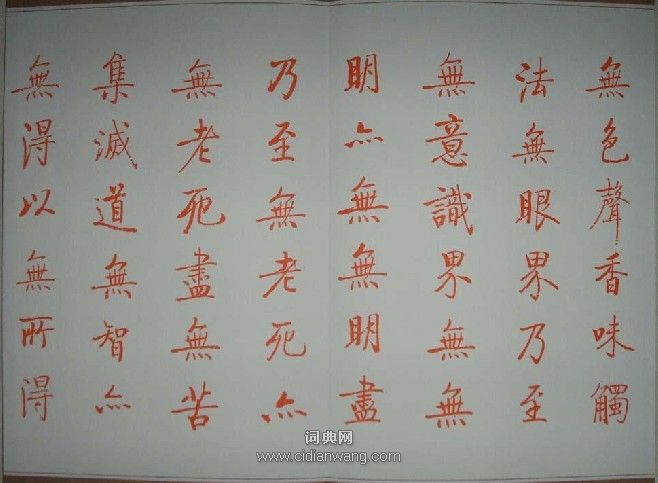 無色聲香味觸
法無眼界乃至
無意識界無無
明亦無無明盡
乃至無老死亦
無老死盡無苦
集滅道無智亦
無得以無所得
词典网
www.cidianwang.com